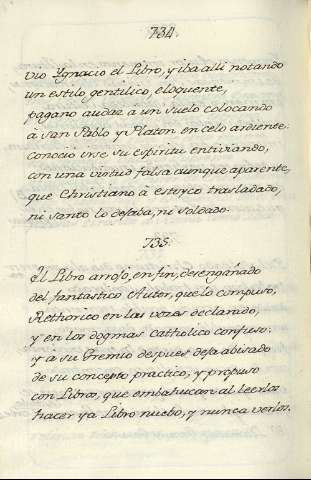 734.
vio Ygnacio el Libro, y iba alli notando
un estilo gentilico, eloquente,
pagano audaz á un suelo colocando
á san Pablo y Platon en celo ardiente:
conoció irse su espiritu entiviando,
con una virtud falsa aunque aparente,
que Christiano á estoyco trasladado,
ni santo lo dejaba, ni soldado.
735.
El Libro arrojo, en fin, desengañado
del fantastico Autor, que lo compuso,
Rethorico en las vozes declarado,
y en los dogmas catholico confuso:
y a su Gremio despues deja abisado
de su concepto practico, y propuso
con Libros, que embahucan al leerlos
hacer ya Libro nuebo, y nunca verlos.